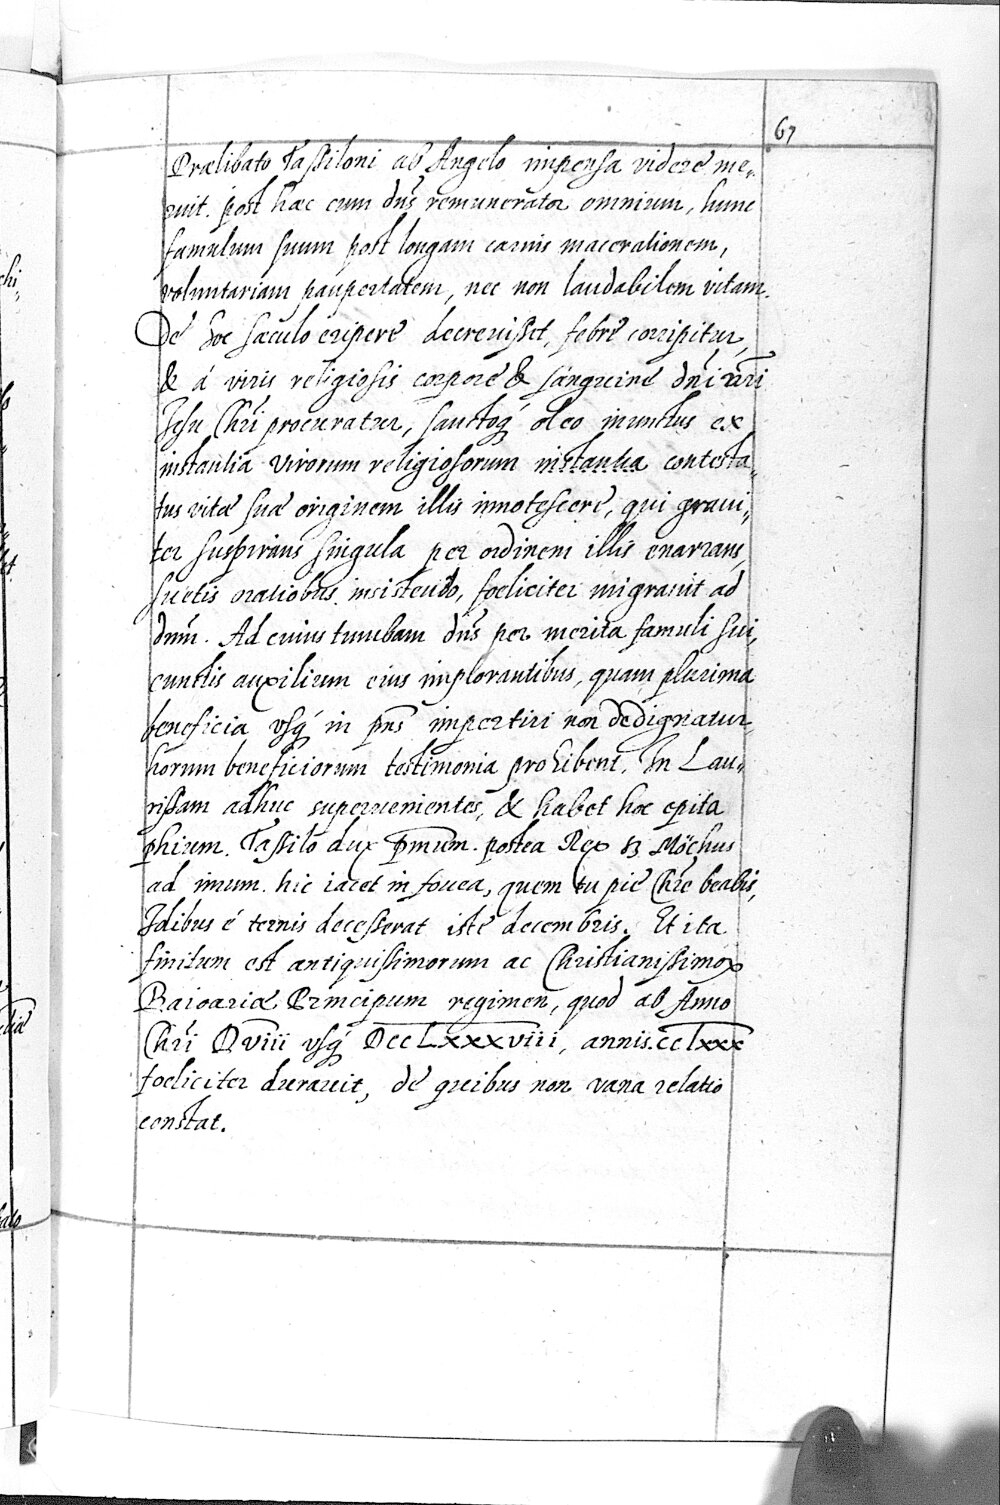 67
Prælibato Tassiloni ab Angelo impensa videre me„
ruit. post hæc cum dn̄s remunerator omnium, hunc
famulum suum post longam carnis macerationem,
voluntariam paupertatem, nec non laudabilem vitam.
De hoc sæculo eripere decrevisset, febre corripitur,
& á viris religiosis corpore & sánguine dn̄i nr̄i
Jesu Chr̄i procuratur, sanctoq́ oleo inunctus ex
instantia virorum religiosorum instantia contesta„
tus vitæ suæ originem illis innotescere, qui gravi„
ter suspirans singula per ordinem illis enarrans,
suetis oratiobus insistendo, foeliciter migravit ad
dnm̄. Ad cuius tumbam dn̄s per merita famuli sui,
cunctis auxilium eius implorantibus, quam plurima
beneficia usq́ in pn̄s impertiri non dedignatur
horum beneficiorum testimonia prohibent. In Lau„
rissam adhuc supervenientes, & habet hoc epita
phium. Tassilo dux p̄mum. postea Rex sz Möchus
ad imum. hic iacet in fovea, quem tu pie Chr̄e beabis,
Idibus é ternis decesserat iste decembris. Et ita
finitum est antiquissimorum ac Christianissimoꝝ
Baioariæ Principum regimen, quod ab Anno
Chr̄i D̅viii usq́ DccLxxxviii, annis. cclxxx
foeliciter duravit, de quibus non vana relatio
constat.